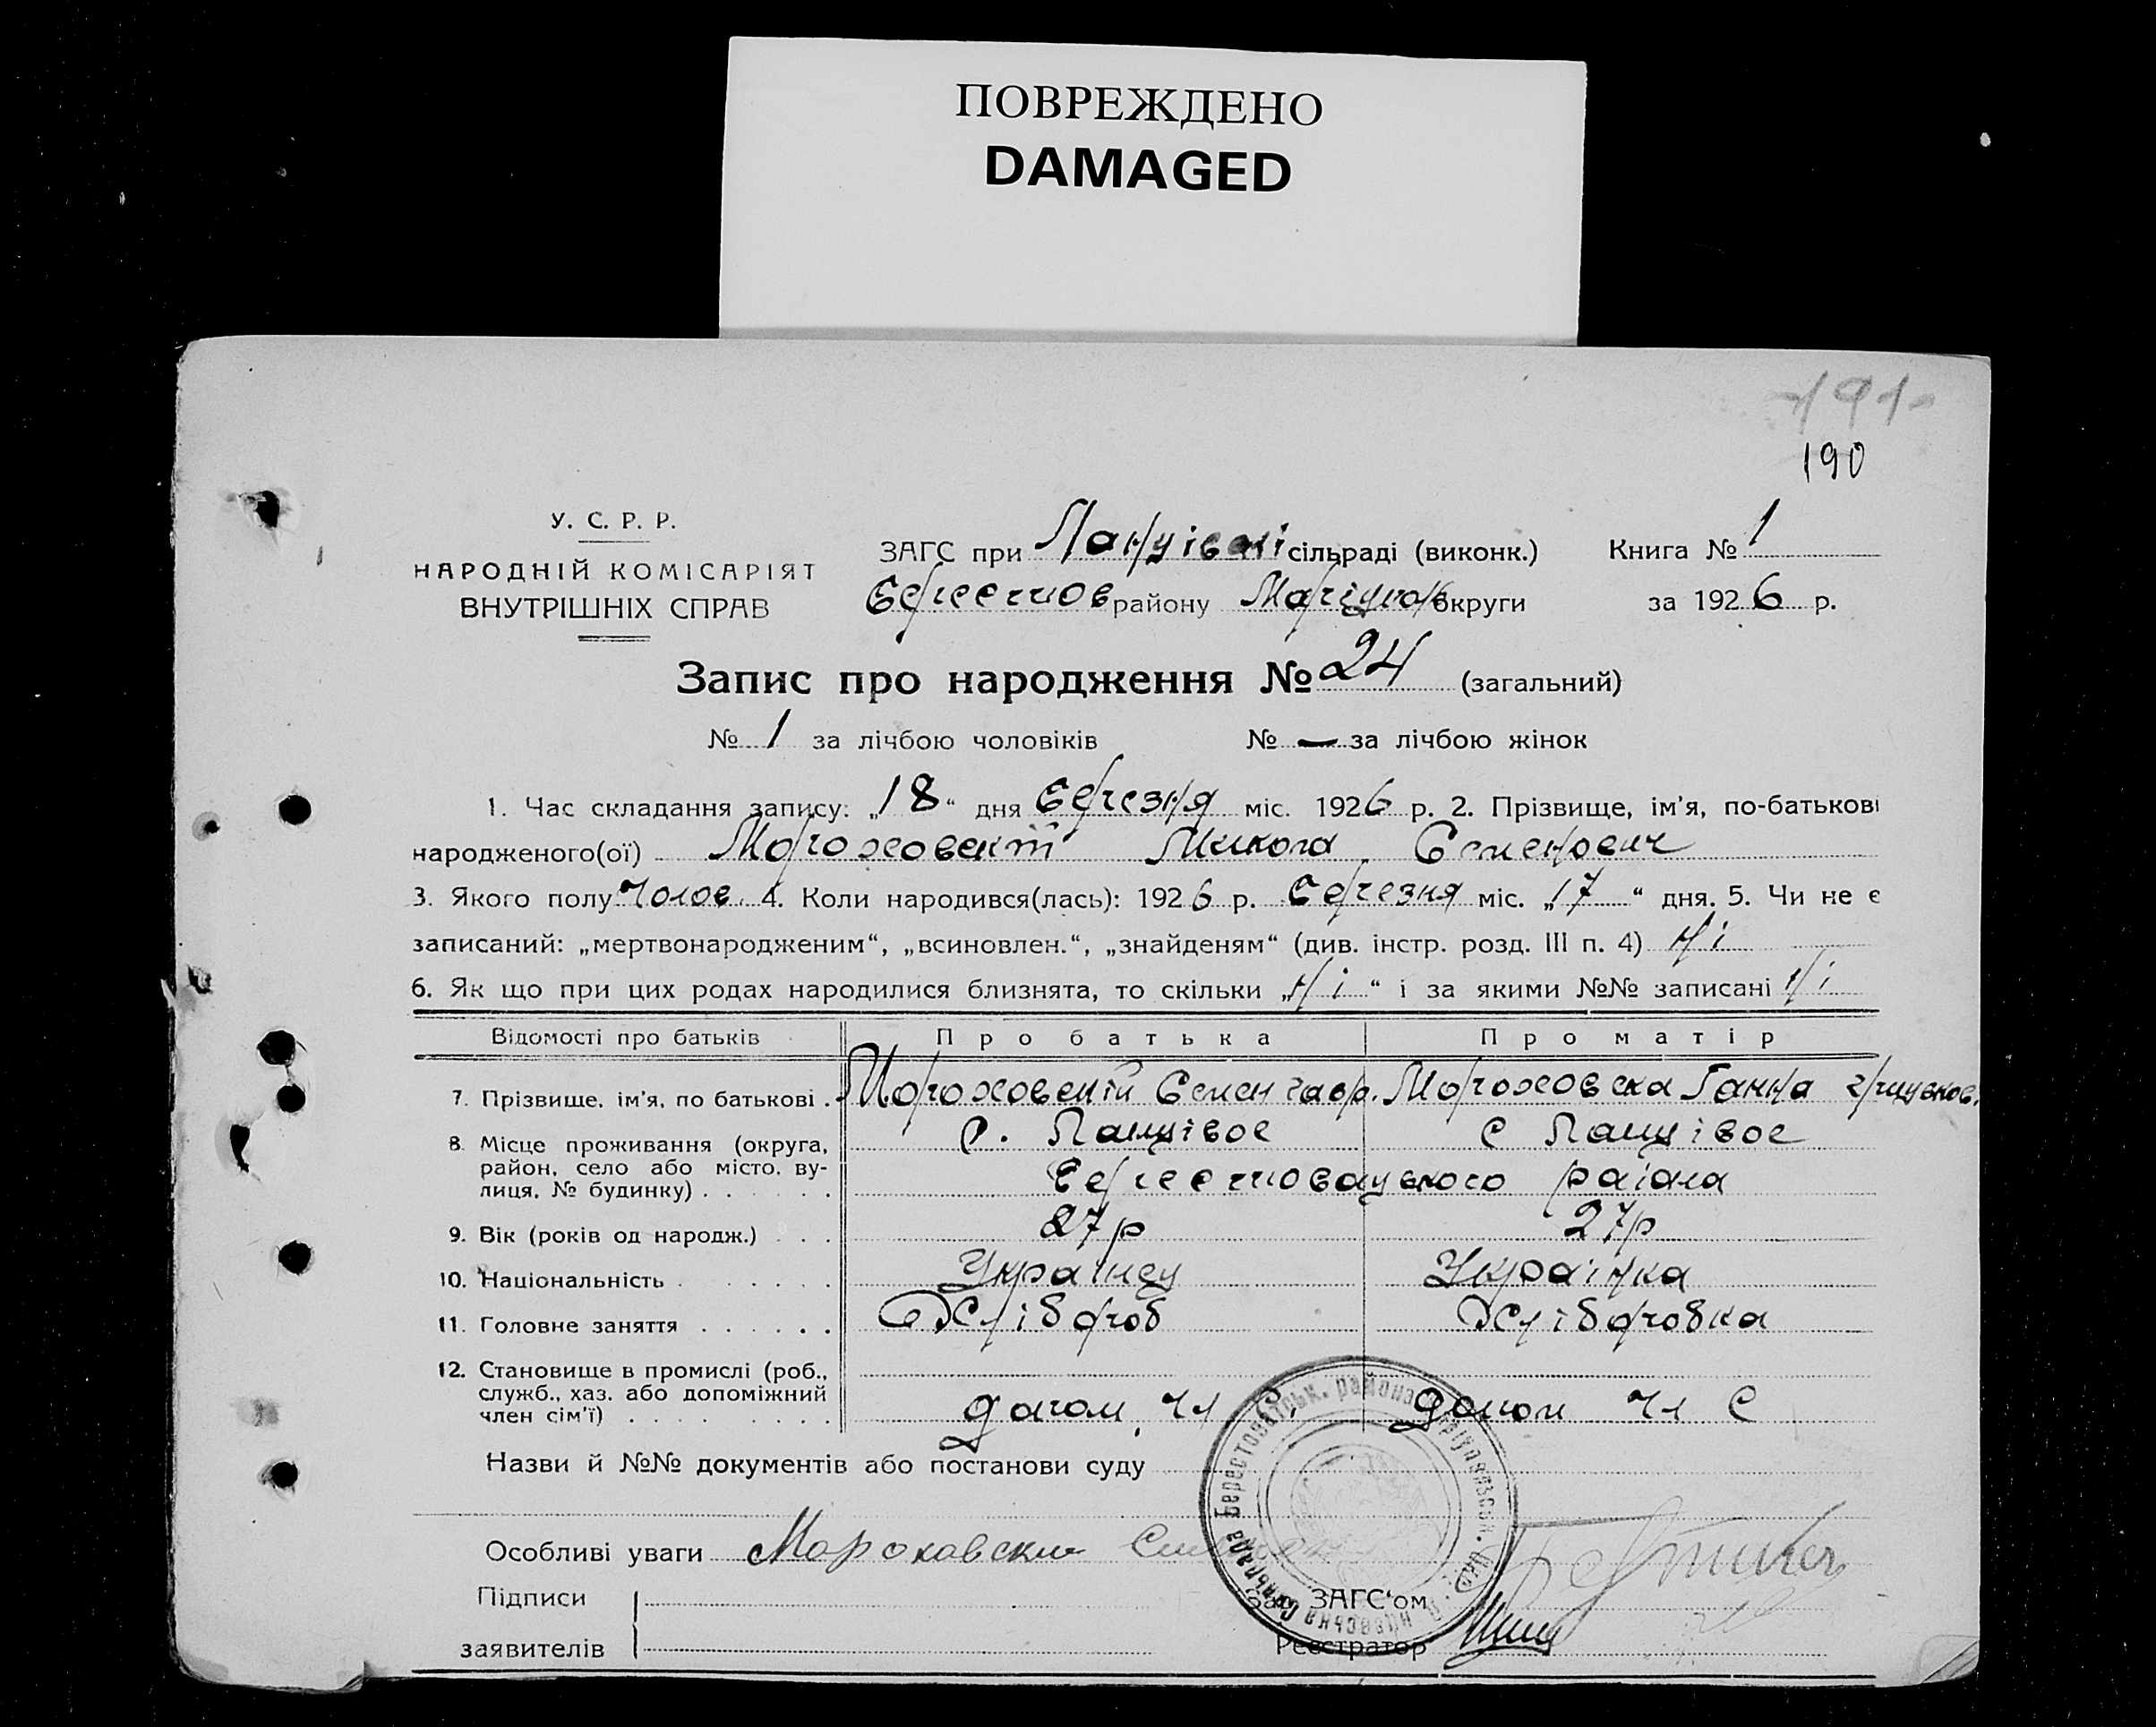 ПОВРЕЖДЕНО
DAMAGED
191
190
У. С. Р. Р.
НАРОДНІЙ КОМІСАРІЯТ
ВНУТРІШНІХ СПРАВ
ЗАГС при сільраді (виконк.) Книга № 1
району округи за 1926 р.
Запис про народження № 24 (загальний)
№ 1 за лічбою чоловіків № — за лічбою жінок
1. Час складання запису: „18“ дня березня міс. 1926 р. 2. Прізвище, ім'я, по-батькові
народженого(ої) Микола Семенович
3. Якого полу чолов. 4. Коли народився(лась): 1926 р. березня міс. „17“ дня. 5. Чи не є
записаний: „мертвонародженим“, „всиновлен.“, „знайденям“ (див. інстр. розд. III п. 4) Ні
6. Як що при цих родах народилися близнята, то скільки „Ні“ і за якими №№ записані Ні
Відомості про батьків Про батька Про матір
7. Прізвище, ім'я, по батькові . Мороховский Семен гавр. Мороховска Ганна
8. Місце проживання (округа, с.
район, село або місто, ву-
лиця, № будинку) . . . . . . района
9. Вік (років од народж.) . . . 27р 27р
10. Національність . . . . . . Українец Українка
11. Головне заняття . . . . . . Хлібороб Хліборобка
12. Становище в промислі (роб.,
служб., хаз. або допоміжний
член сім'ї) . . . . . . . . чл С. допом чл С
Назви й №№ документів або постанови суду
Особливі уваги Мороховский
Підписи
заявителів
Зав. ЗАГС'ом
Реєстратор
Сільрада Берестоватськ. района